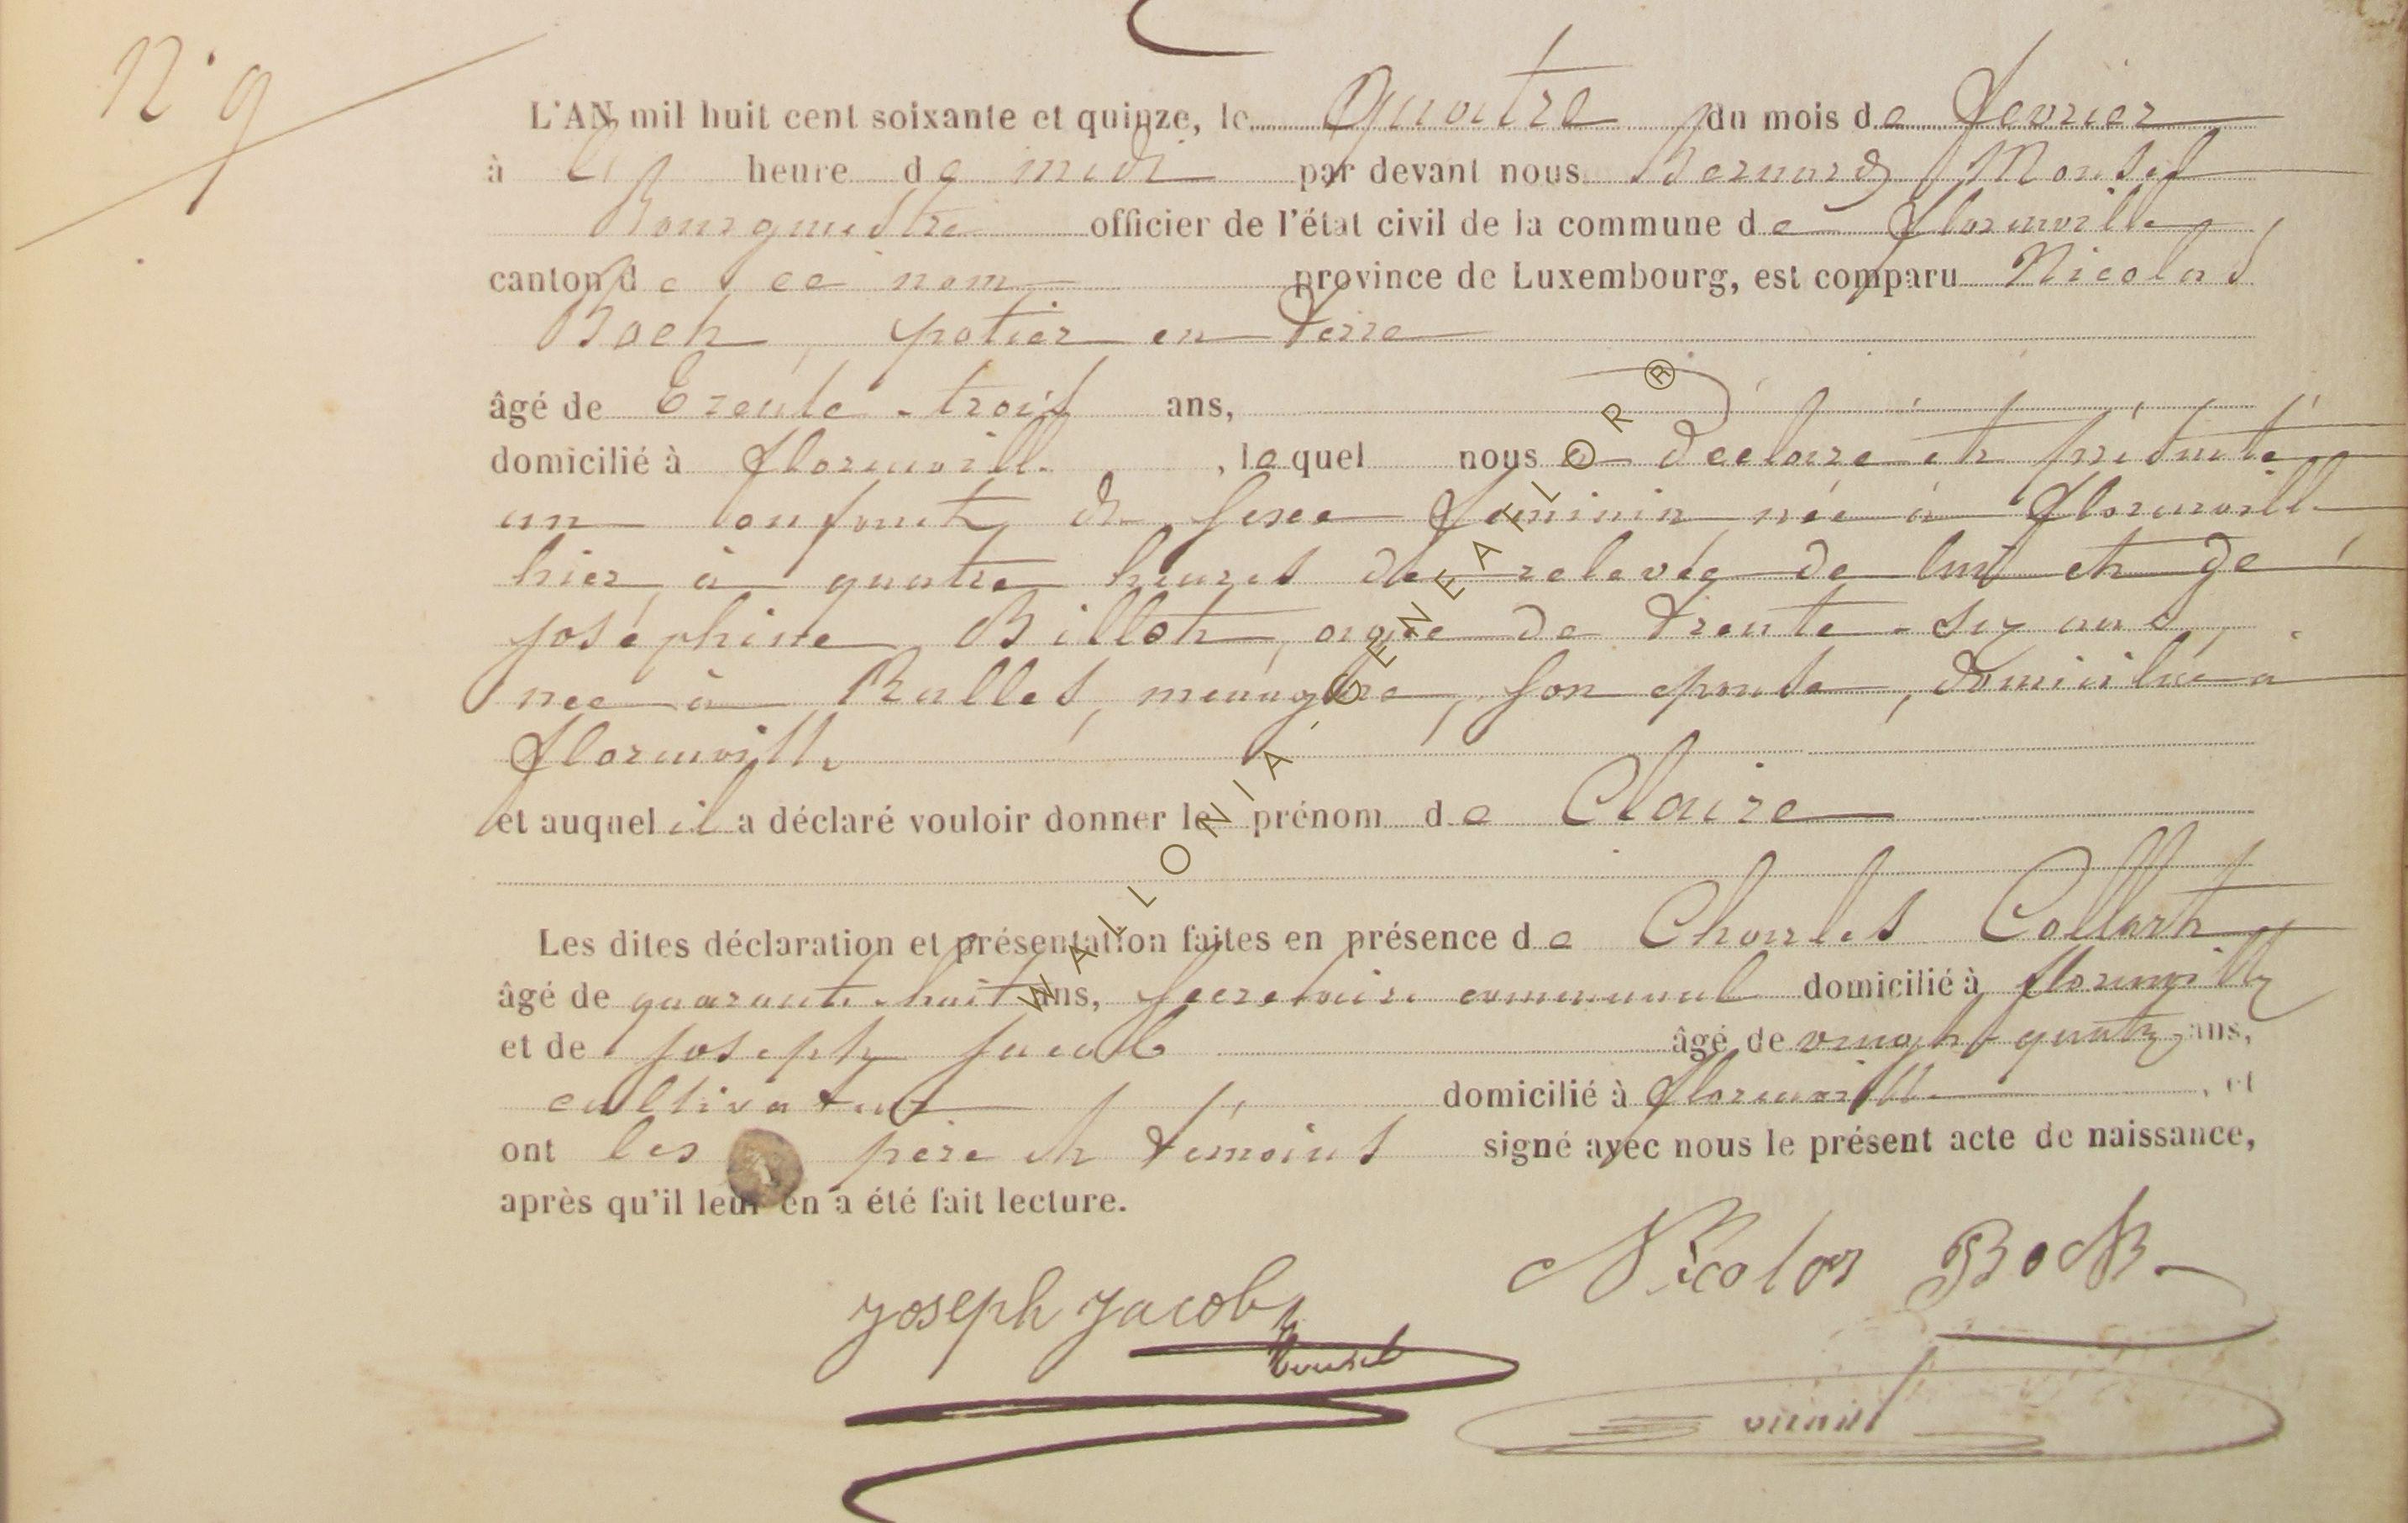 N° 9
L'AN mil huit cent soixante et quinze, le Quatre du mois de fevrier
à heure de midi par devant nous Bernard Mousel
Bourgmestre officier de l'état civil de la commune de florenville
canton de ce nom province de Luxembourg, est comparu Nicolas
Boch, potier en terre
âgé de Trente-trois ans,
domicilié à florenville, lequel nous a déclaré et présenté
un enfant de sexe féminin née à florenville
hier à quatre heures de relevée de lui et de
joséphine Billot, agée de trente-six ans,
née à Rulles, ménagère, son épouse, domiciliée à
florenville
et auquel il a déclaré vouloir donner le prénom de Claire
Les dites déclaration et présentation faites en présence de Charles Collart
âgé de quarante-huit ans, secretaire communal domicilié à florenville
et de joseph jacob âgé de vingt-quatre ans,
cultivateur domicilié à florenville, et
ont les père et témoins signé avec nous le présent acte de naissance,
après qu'il leur en a été fait lecture.
Nicolas Boch
Joseph Jacob
Mousel
WALLONIA'GENEAFLOR®